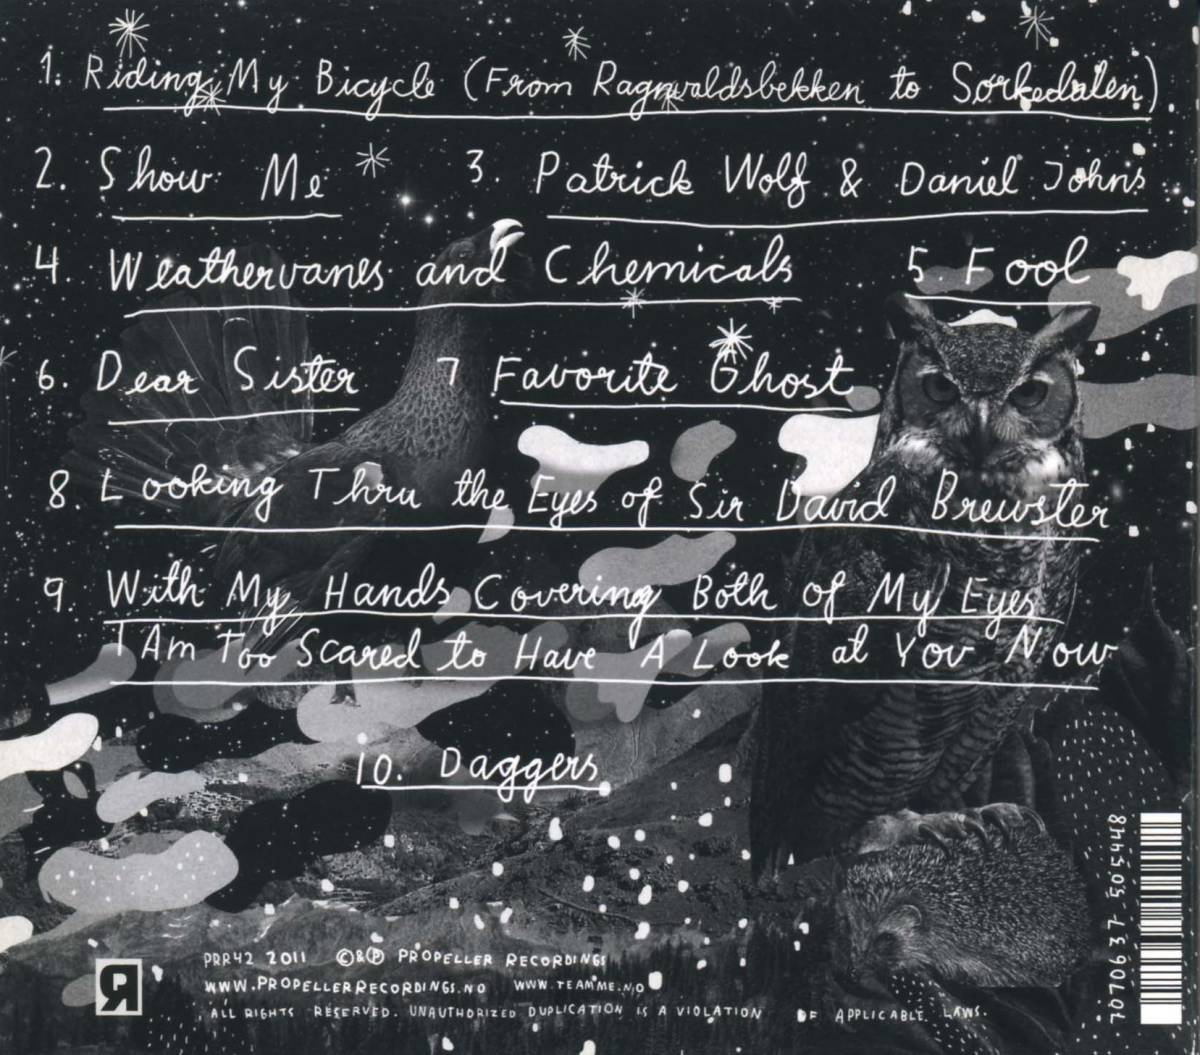 1. Riding My Bicycle (From Ragnvaldsbekken to Sorkedalen)
2. Show Me 3. Patrick Wolf & Daniel Johns
4 Weathervanes and Chemicals 5. Fool
6. Dear Sister 7 Favorite Ghost
8. Looking Thru the Eyes of Sir David Brewster
9. With My Hands Covering Both of My Eyes
I Am Too Scared to Have A Look at You Now
10. Daggers
PRR42 2011 ©&℗ PROPELLER RECORDINGS
WWW.PROPELLERRECORDINGS.NO WWW.TEAMME.NO
ALL RIGHTS RESERVED. UNAUTHORIZED DUPLICATION IS A VIOLATION OF APPLICABLE LAWS.
7070637 505448